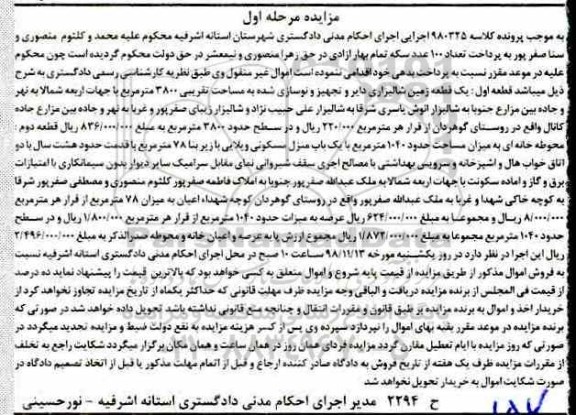 مزایده مرحله اول
به موجب پرونده کلاسه ۹۸۰۳۲۵ اجرایی اجرای احکام مدنی دادگستری شهرستان استانه اشرفیه محکوم علیه محمد و کلثوم منصوری و
سنا صفر پور به پرداخت تعداد ۱۰۰ عدد سکه تمام بهار ازادی در حق زهرا منصوری و نیمعشر در حق دولت محکوم گردیده است چون محکوم
علیه در موعد مقرر نسبت به پرداخت بدهی خود اقدامی ننموده است اموال غیر منقول وی طبق نظریه کارشناسی رسمی دادگستری به شرح
ذیل میباشد قطعه اول : یک قطعه زمین شالیزاری دایر و تجهیز و نوسازی شده به مساحت تقریبی ۳۸۰۰ مترمربع با جهات اربعه شمالا به نهر
و جاده بین مزارع جنوبا به شالیزار انوش یاسری شرقا به شالیزار علی حبیب نژاد و شالیزار زیبای صفرپور و غربا به نهر و جاده بین مزارع جاده
کانال واقع در روستای گوهردان از قرار هر مترمربع ۲۲۰/۰۰۰ ریال و در سطح حدود ۳۸۰۰ مترمربع به مبلغ ۸۳۶/۰۰۰/۰۰۰ ریال قطعه دوم :
محوطه خانه ای به میزان مساحت حدود ۱۰۴۰ مترمربع با یک باب منزل مسکونی ویلایی با زیربنا ۷۸ مترمربع با قدمت حدود هشت سال با دو
اتاق خواب هال و اشپزخانه و سرویس بهداشتی با مصالح اجری سقف شیروانی نمای مقابل سرامیک سایر دیوار بدون سیمانکاری با امتیازات
برق و گاز و اماده سکونت با جهات اربعه شمالا به ملک عبدالله صفرپور جنوبا به املاک فاطمه صفرپور کلثوم منصوری و مصطفی صفرپور شرقا
به کوچه خاکی شهدا و غربا به ملک عبدالله صفرپور واقع در روستای گوهردان کوچه شهداء اعیان به میزان ۷۸ مترمربع از قرار هر مترمربع
۸/۰۰۰/۰۰۰ ریال و مجموعا به مبلغ ۶۲۴/۰۰۰/۰۰۰ ریال عرصه به میزان حدود ۱۰۴۰ مترمربع از قرار هر مترمربع ۱/۸۰۰/۰۰۰ ریال و در سطح
حدود ۱۰۴۰ مترمربع مجموعا به مبلغ ۱/۸۷۲/۰۰۰/۰۰۰ ریال مجموع ارزش پایه عرصه و اعیان خانه و محوطه سر الذکر به مبلغ ۲/۴۹۶/۰۰۰/۰۰۰
ریال این اجرا در نظر دارد در روز یکشنبه مورخه ۹۸/۱۱/۱۳ ساعت ۱۰ صبح در محل اجرای احکام مدنی دادگستری استانه اشرفیه نسبت
به فروش اموال مذکور از طریق مزایده از قیمت پایه شروع و اموال متعلق به کسی خواهد بود که بالاترین قیمت را پیشنهاد نماید ده درصد
از قیمت فی المجلس از برنده مزایده دریافت و الباقی وجه مزایده ظرف مهلت قانونی که حداکثر یکماه از تاریخ مزایده تجاوز نخواهد کرد از
خریدار اخذ و اموال به برنده مزایده بر طبق قانون و مقررات انتقال و چنانچه منع قانونی نداشته باشد تحویل داده خواهد شد در صورتی که
برنده مزایده در موعد مقرر بقیه بهای اموال را نپردازد سپرده وی پس از کسر هزینه مزایده به نفع دولت ضبط و مزایده تجدید میگردد در
صورتی که روز مزایده با ایام تعطیل مقارن گردد مزایده فردای همان روز در همان ساعت و همان مکان برگزار میگردد شکایت راجع به تخلف
از مقررات مزایده ظرف یک هفته از تاریخ فروش به دادگاه صادر کننده ارجاع و قبل از اتمام مهلت مذکور یا قبل از اتخاذ تصمیم دادگاه در
صورت شکایت اموال به خریدار تحویل نخواهد شد
ح ۲۲۹۴ مدیر اجرای احکام مدنی دادگستری استانه اشرفیه - نورحسینی